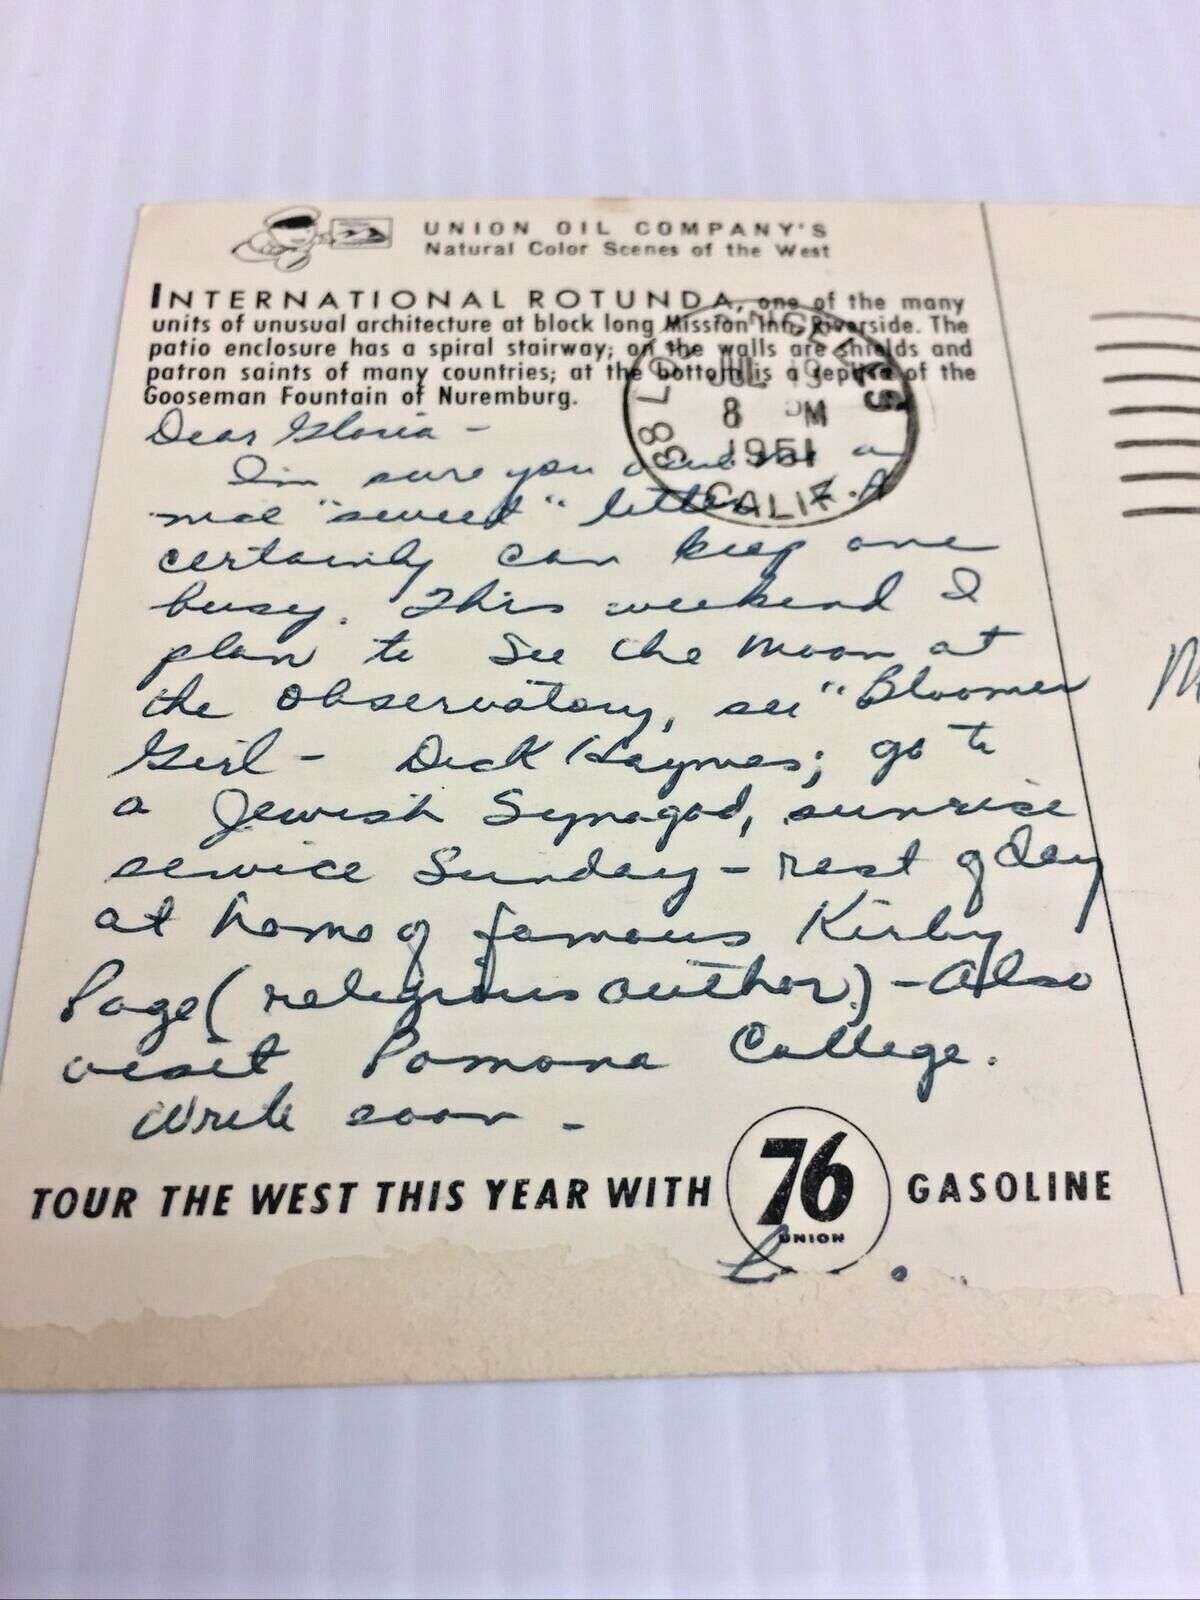 UNION OIL COMPANY'S
Natural Color Scenes of the West
INTERNATIONAL ROTUNDA, one of the many
units of unusual architecture at block long Mission Inn, Riverside. The
patio enclosure has a spiral stairway; on the walls are shields and
patron saints of many countries; at the bottom is a replica of the
Gooseman Fountain of Nuremburg.
LOS ANGELES
JUL 9
8 PM
1951
CALIF.
Dear Gloria -
I'm sure you owe me a
nice "sweet" letter. L.A
certainly can keep one
busy. This weekend I
plan to see the moon at
the observatory, see "Bloomer
Girl - Dick Haymes; go to
a Jewish Synagod, sunrise
service Sunday - rest of day
at home of famous Kirby
Page (religious author.) - Also
visit Pomona College.
Write soon -
TOUR THE WEST THIS YEAR WITH 76 UNION GASOLINE